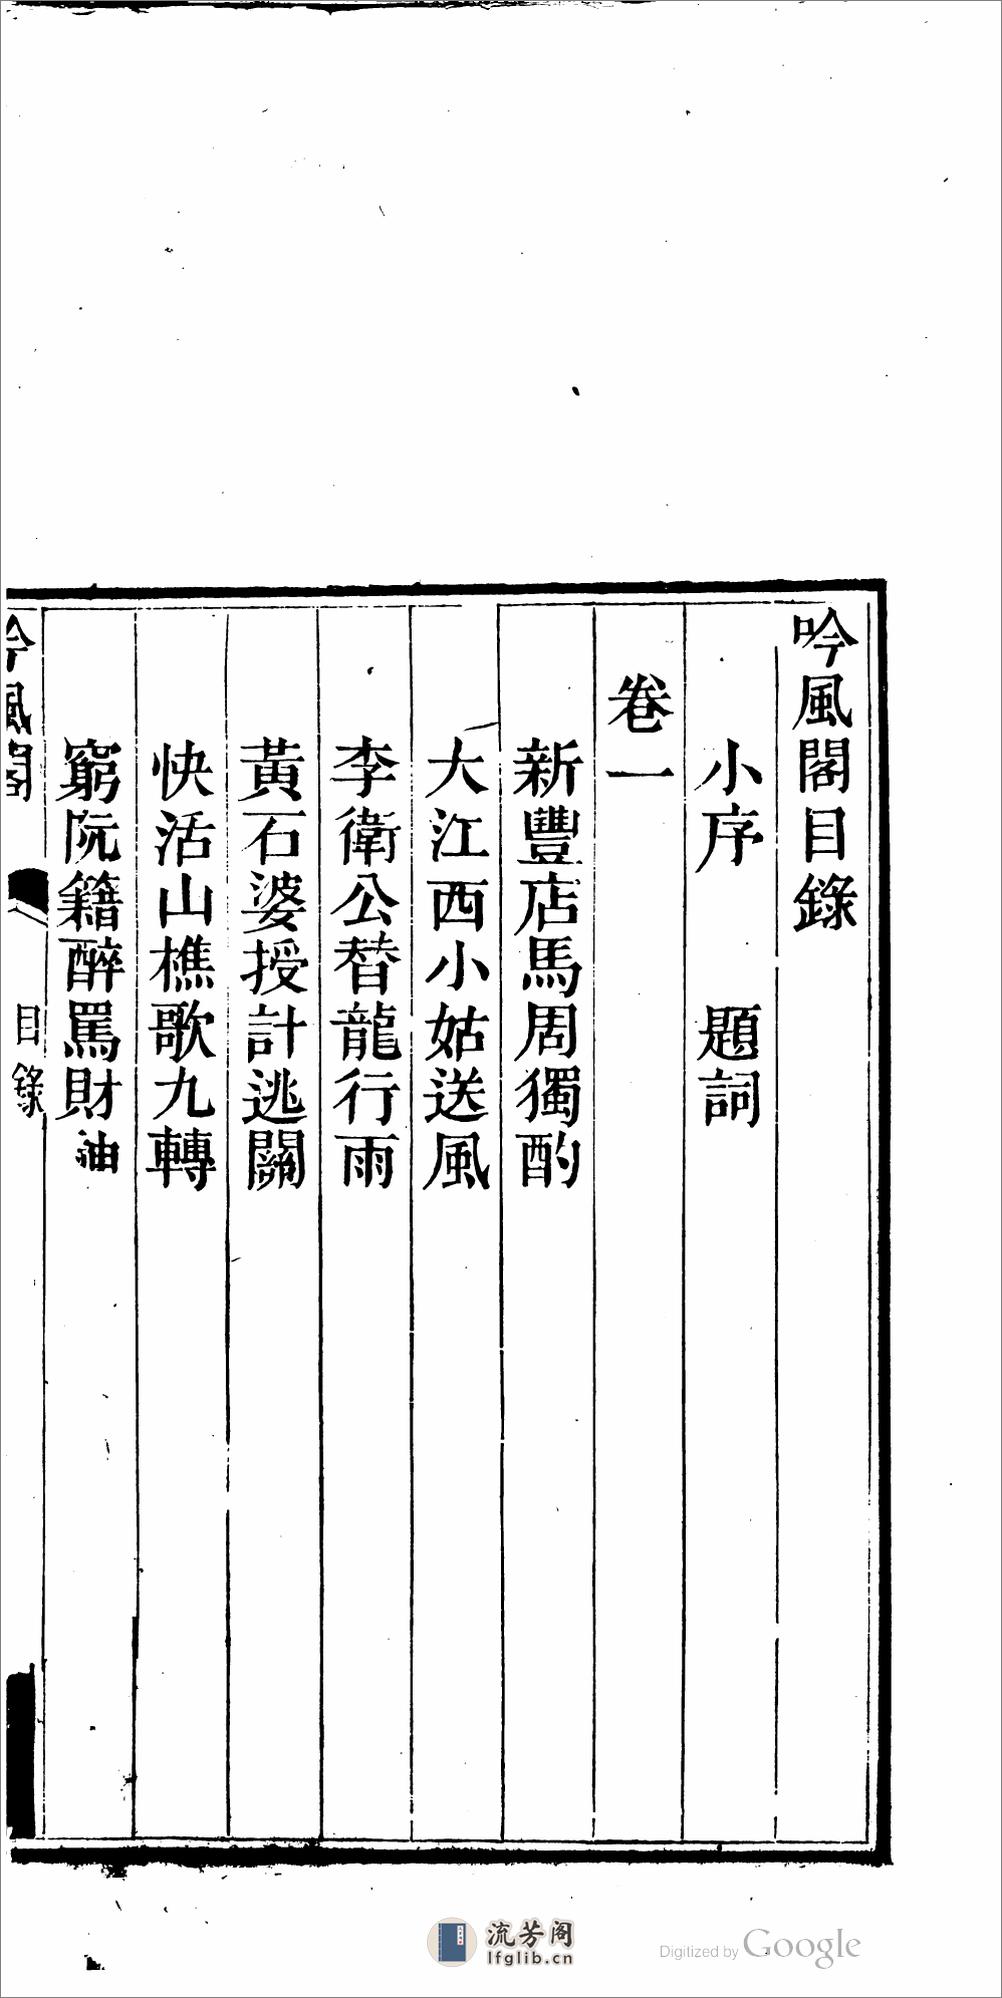 吟風閣目錄
小序　題詞
卷一
新豐店馬周獨酌
大江西小姑送風
李衛公替龍行雨
黃石婆授計逃關
快活山樵歌九轉
窮阮籍醉罵財
吟風閣　目錄
流芳阁
lfglib.cn
Digitized by Google